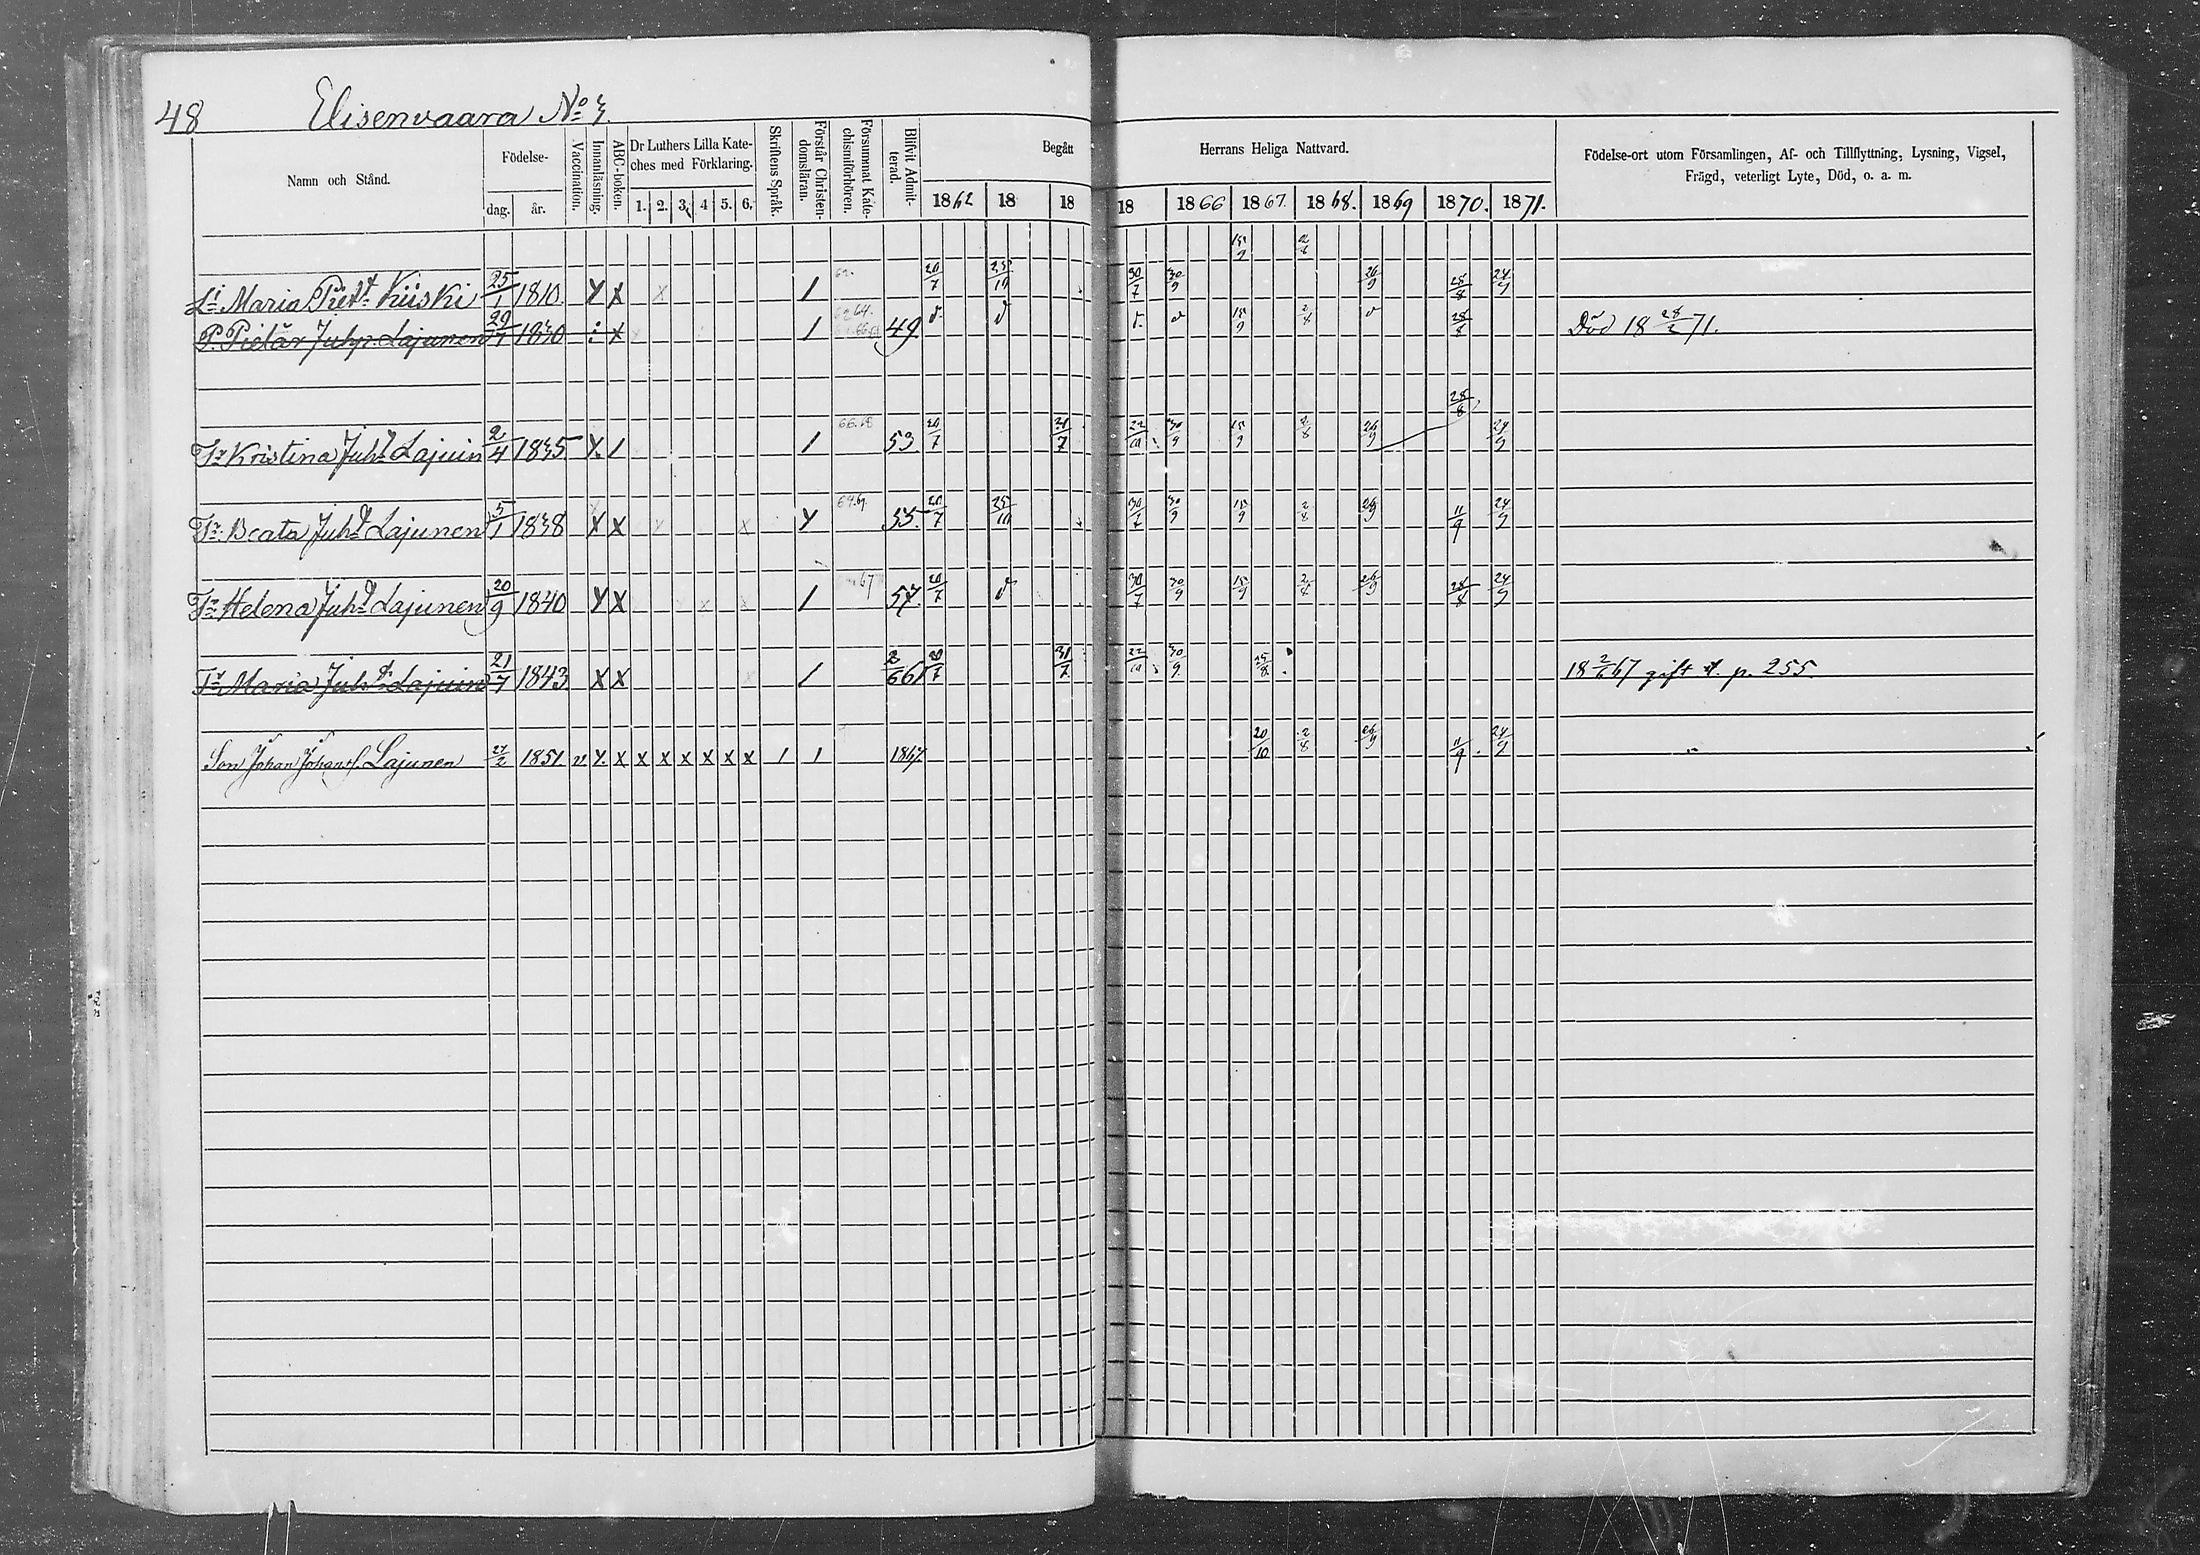 48 Elisenvaara No 3.
Namn och Stånd. Födelse- dag. år. Vaccination. Innanläsning. ABC-boken. Dr Luthers Lilla Kateches med Förklaring. 1. 2. 3. 4 5. 6. Skriftens Språk. Förstår Christendomsläran. Försummat Katechismiförhören. Blifvit Admitterad. Begått Herrans Heliga Nattvard. 1862 18 18 18 1866 1867. 1868. 1869 1870. 1871. Födelse-ort utom Församlingen, Af- och Tillflyttning, Lysning, Vigsel, Frägd, veterligt Lyte, Död, o. a. m.
15/9 2/8
Maria Kiiski 25/1 1810 Y X 1 20/7 25/10 30/7 30/9 26/9 28/8 24/9
P. Pietar Juhp. Lajunen 29/7 1830 X 1 49 v v v. v 15/9 2/8 v 28/8 Död 18 28/2 71.
28/8
Kristina Juh Lajuin 2/4 1835 Y. 1 1 66.68 53 20/7 31/7 22/10 30/9 15/9 2/8 26/9 24/9
Beata Juh Lajunen 5/1 1838 X X Y 55. 20/7 25/10 30/7 30/9 15/9 2/8 26/9 11/9 24/9
Helena Juh Lajunen 20/9 1840 Y X 1 67 57. 20/7 v 30/7 30/9 15/9 2/8 26/9 28/8 24/9
Maria Juh Lajuin 21/7 1843 X X 1 20/7 31/7 22/10 30/9 25/8. gift p. 255.
Son Johan Johans. Lajunen 1851 v Y. X X X X X X X 1 1 1867. 20/10 2/8 26/9 11/9 24/9